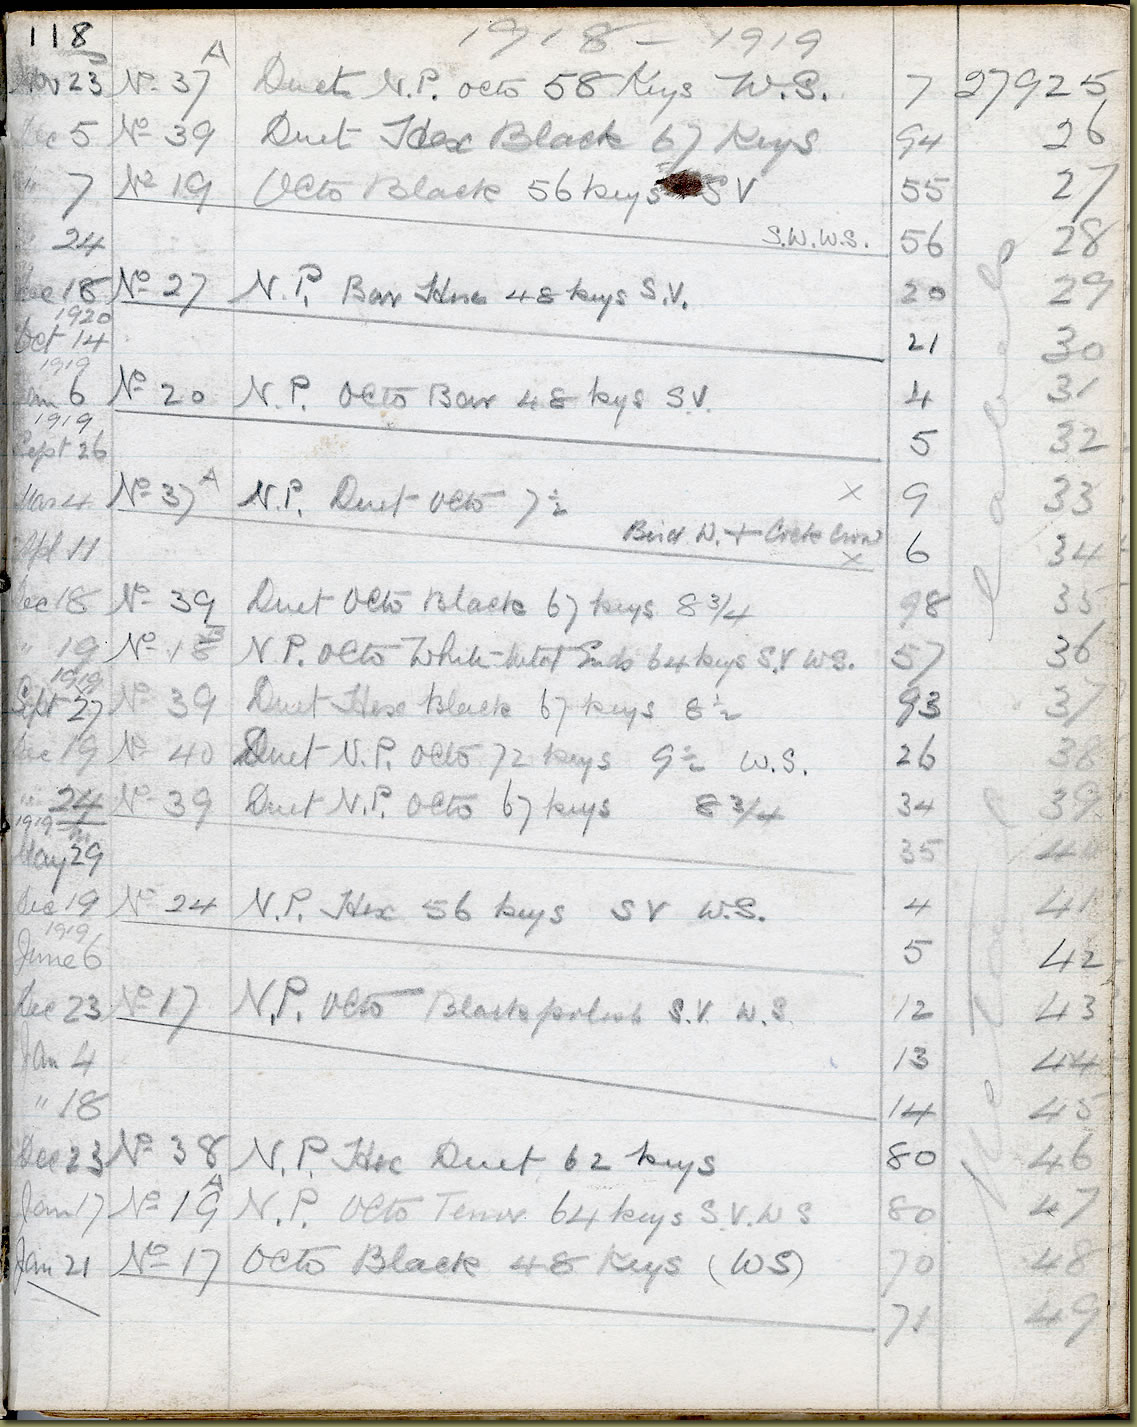 118 1918 – 1919
Nov 23 No 37 A Duet N.P. Octo 58 Keys W.S. 7 27925
Dec 5 No 39 Duet Hex Black 67 Keys 94 26
" 7 No 19 Octo Black 56 keys SV 55 27
" 24 S.W.W.S. 56 28
Dec 18 No 27 N.P. Bar Hex 48 keys S.V. 20 29
1920
Oct 14 21 30
1919
Jan 6 No 20 N.P. Octo Bar 48 keys S.V. 4 31
1919
Sept 26 5 32
Mar 4 No 37 A N.P. Duet Octo 7½ × 9 33
Apl 11 Bird W. + Cock Crow × 6 34
Dec 18 No 39 Duet Octo Black 67 keys 8 3/4 98 35
" 19 No 18 N.P. Octo White-Metal Ends 64 keys S.V WS. 57 36
1919
Sept 27 No 39 Duet Hex Black 67 keys 8½ 93 37
Dec 19 No 40 Duet N.P. Octo 72 keys 9½ W.S. 26 38
" 24 No 39 Duet N.P. Octo 67 keys 8 3/4 34 39
1919
May 29 35 40
Dec 19 No 24 N.P. Hex 56 keys SV W.S. 4 41
1919
June 6 5 42
Dec 23 No 17 N.P. Octo Black polish S.V. W.S. 12 43
Jan 4 13 44
" 18 14 45
Dec 23 No 38 N.P. Hex Duet 62 keys 80 46
Jan 17 No 19 A N.P. Octo Tenor 64 keys S.V. W S 80 47
Jan 21 No 17 Octo Black 48 Keys (WS) 70 48
71 49